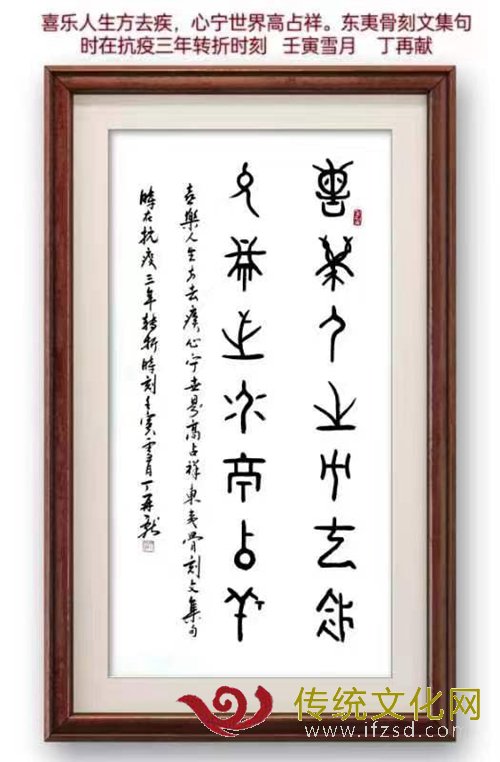 喜乐人生方去疾，心宁世界高占祥。东夷骨刻文集句
时在抗疫三年转折时刻 壬寅雪月 丁再献
喜乐人生方去疾
心宁世界高占祥
喜樂人生方去疾心宁世界高占祥東夷骨刻文集句
時在抗疫三年转折時刻壬寅雪月丁再献
传统文化网
www.ifzsd.com